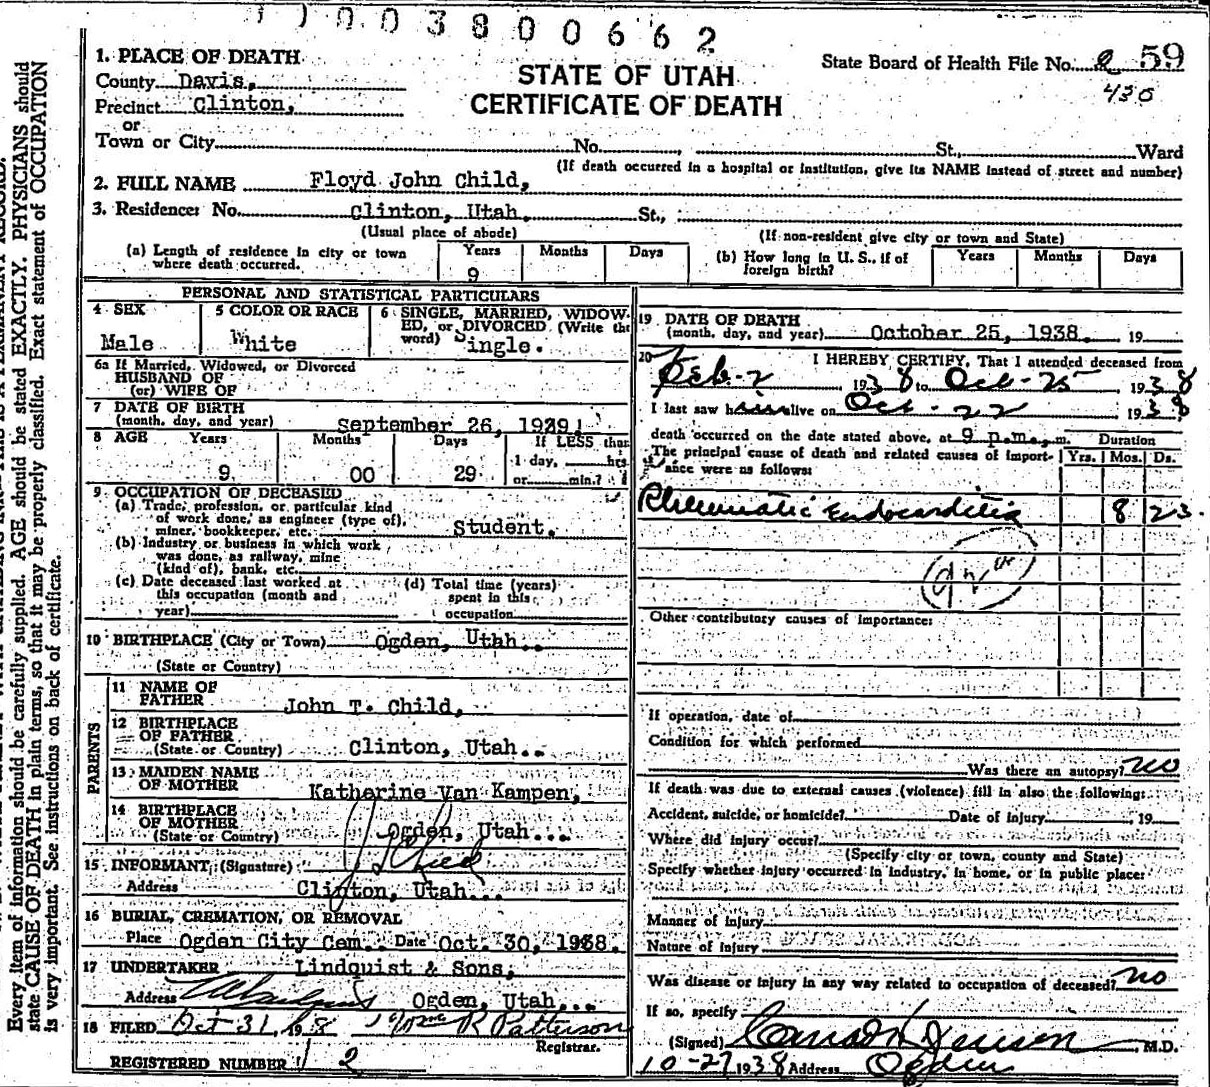 1003800662
STATE OF UTAH
CERTIFICATE OF DEATH
State Board of Health File No. 2 59
430
1. PLACE OF DEATH
County Davis,
Precinct Clinton,
or
Town or City No. St., Ward
(If death occurred in a hospital or institution, give its NAME instead of street and number)
2. FULL NAME Floyd John Child,
3. Residence: No. Clinton, Utah, St.,
(Usual place of abode) (If non-resident give city or town and State)
(a) Length of residence in city or town where death occurred. Years 9 Months Days
(b) How long in U. S., if of foreign birth? Years Months Days
PERSONAL AND STATISTICAL PARTICULARS
4 SEX Male
5 COLOR OR RACE White
6 SINGLE, MARRIED, WIDOWED, or DIVORCED (Write the word) Single.
6a If Married, Widowed, or Divorced
HUSBAND OF
(or) WIFE OF
7 DATE OF BIRTH
(month, day, and year) September 26, 1929
8 AGE Years Months Days If LESS than
1 day, hrs
9. 00 29. or min.?
9 OCCUPATION OF DECEASED
(a) Trade, profession, or particular kind
of work done, as engineer (type of),
miner, bookkeeper, etc. Student.
(b) Industry or business in which work
was done, as railway, mine
(kind of), bank, etc.
(c) Date deceased last worked at
this occupation (month and
year)
(d) Total time (years)
spent in this
occupation
10 BIRTHPLACE (City or Town) Ogden, Utah..
(State or Country)
PARENTS
11 NAME OF
FATHER John T. Child,
12 BIRTHPLACE
OF FATHER
(State or Country) Clinton, Utah..
13 MAIDEN NAME
OF MOTHER Katherine Van Kampen,
14 BIRTHPLACE
OF MOTHER
(State or Country) Ogden, Utah...
15 INFORMANT, (Signature) J T Child
Address Clinton, Utah...
16 BURIAL, CREMATION, OR REMOVAL
Place Ogden City Cem.. Date Oct. 30, 1938.
17 UNDERTAKER Lindquist & Sons,
Address Ogden, Utah...
18 FILED Oct 31, 1938 R Patterson
Registrar.
REGISTERED NUMBER 12
19 DATE OF DEATH
(month, day, and year) October 25, 1938. 19
20 I HEREBY CERTIFY, That I attended deceased from
Feb-2 1938 to Oct-25 1938
I last saw him alive on Oct-22 1938
death occurred on the date stated above, at 9 p.m. m. Duration
The principal cause of death and related causes of importance were as follows: Yrs. Mos. Ds.
Rheumatic Endocarditis 8 23.
Other contributory causes of importance:
If operation, date of
Condition for which performed
Was there an autopsy? no
If death was due to external causes (violence) fill in also the following:
Accident, suicide, or homicide? Date of injury 19
Where did injury occur?
(Specify city or town, county and State)
Specify whether injury occurred in industry, in home, or in public place:
Manner of injury
Nature of injury
Was disease or injury in any way related to occupation of deceased? no
If so, specify
(Signed) Conrad H Jenson, M.D.
10-27 1938 Address Ogden
Every item of information should be carefully supplied. AGE should be stated EXACTLY. PHYSICIANS should
state CAUSE OF DEATH in plain terms, so that it may be properly classified. Exact statement of OCCUPATION
is very important. See instructions on back of certificate.